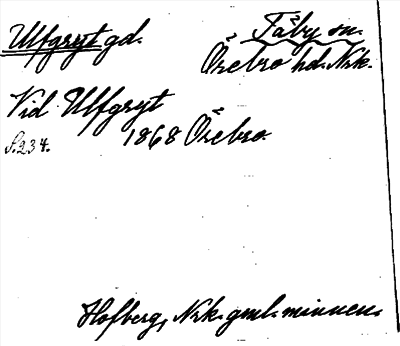 Ulfgryt gd. Täby sn.
Örebro hd. Nrk.
Vid Ulfgryt
S. 234. 1868 Örebro.
Hofberg, Nrk. gml. minnen.